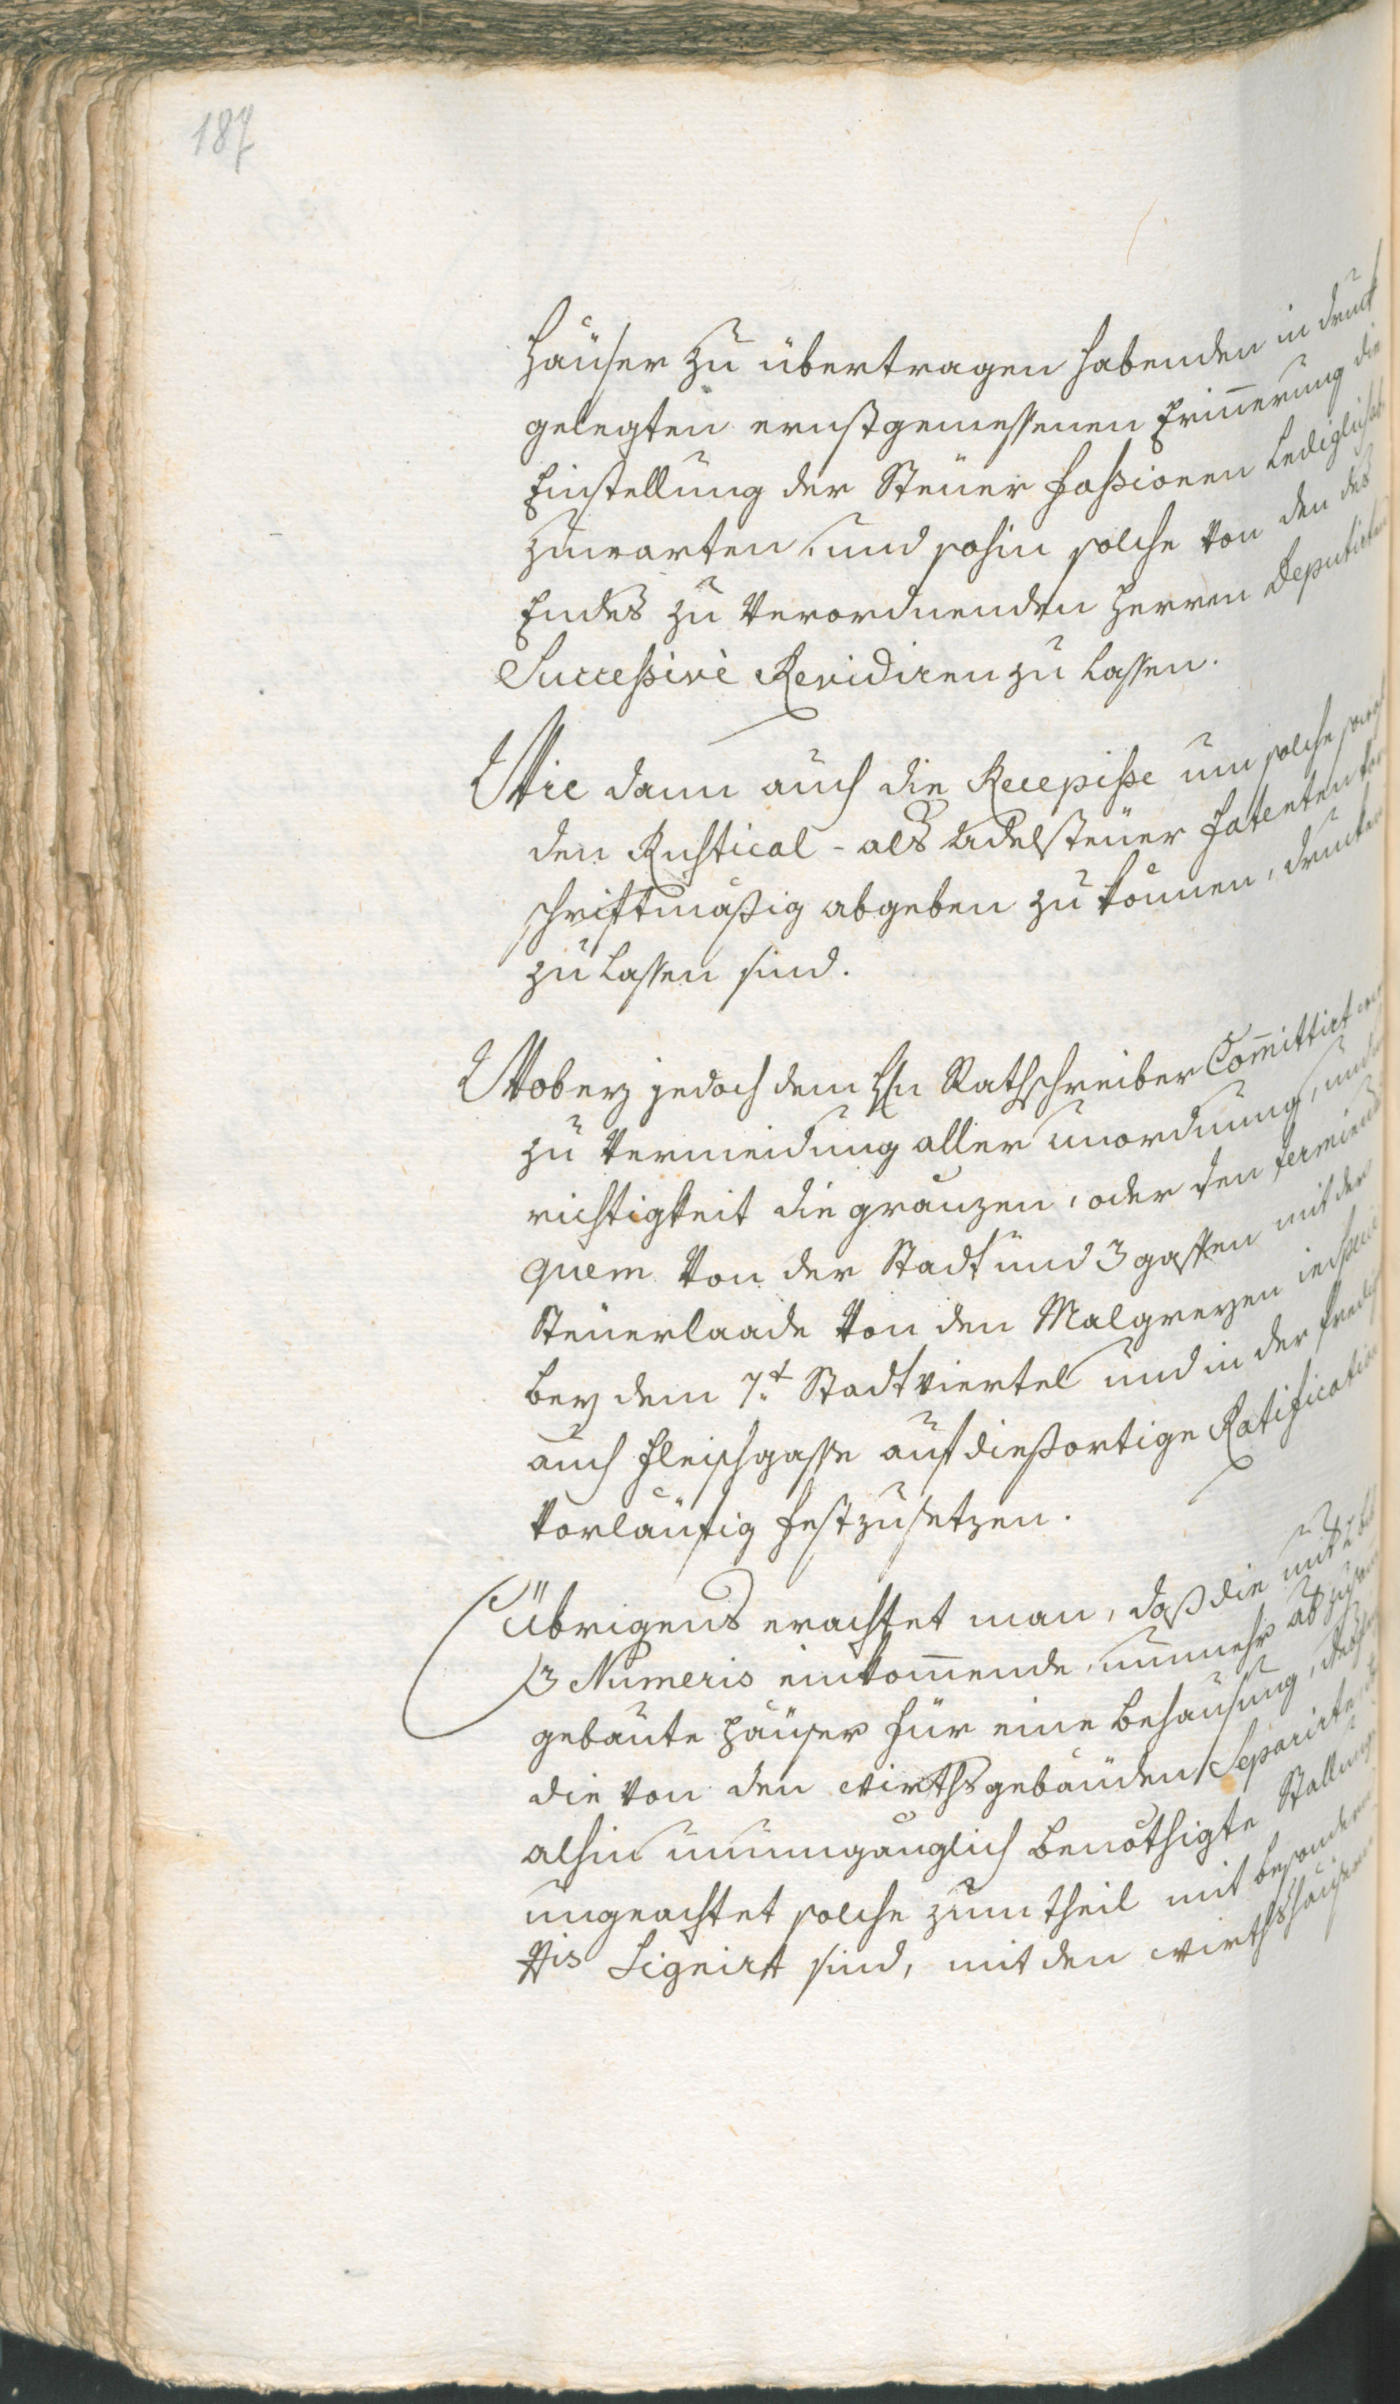 187
Häuser zu übertragen habenden in druck
gelegten ernstgemessenen Erinnerung die
Einstellung der Steuer Fassionen Lediglich
zuwarten, und sohin solche von den des
Endes zu verordnenden Herren Deputirten
Successivè Revidiren zu lassen.
Wie dann auch die Recepisse um solche
den Rustical- als Adelssteuer Fatenten
schriftmäßig abgeben zu können, drucken
zu lassen sind.
Wobey jedoch dem Hn Rathschreiber Committirt
zu Vermeidung aller unordnung, und
richtigkeit die gränzen, oder den terminus
quem von der Stadt und 3 gassen mit der
Steuerlaade von den Malgreyen
bey dem 7.t Stadtviertel und in der
auch Fleischgasse auf diessortige Ratification
vorläufig festzusetzen.
Übrigens erachtet man, daß die mit 2 bis
3 Numeris einkommende, nunmehr
gebaute Häuser für eine behausung,
die von den wirthsgebäuden Separirte,
alhin unumgänglich benöthigte Stallungen
ungeachtet solche zum theil mit besonderen
Nis Signirt sind, mit den wirthshäusern